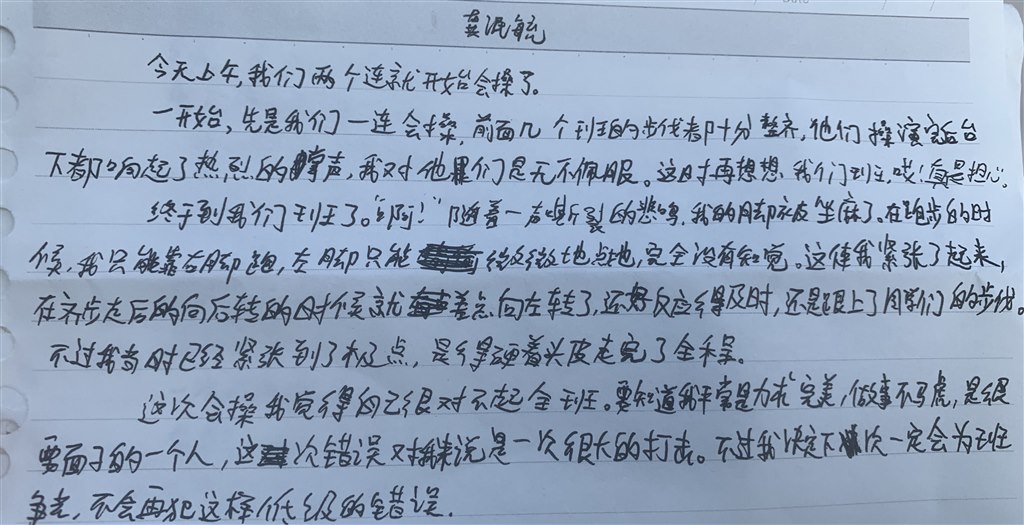 今天上午,我们两个连就开始会操了。
一开始,先是我们一连会操,前面几个班的步伐都十分整齐,他们操演完后台
下都响起了热烈的掌声,我对他们是无不佩服。这时再想想我们班,唉!真是担心。
终于到我们班了。“啊!”随着一声撕裂的悲鸣,我的脚被坐麻了。在跑步的时
候,我只能靠右脚跑,左脚只能微微地点地,完全没有知觉。这使我紧张了起来,
在齐步走后的向后转的时候就差点向左转了,还好反应得及时,还是跟上了同学们的步伐。
不过我当时已经紧张到了极点,是得硬着头皮走完了全程。
这次会操我觉得自己很对不起全班。要知道我平常是力求完美,做事不马虎,是很
要面子的一个人,这次错误对我来说是一次很大的打击。不过我决定下次一定会为班
争光,不会再犯这样低级的错误.